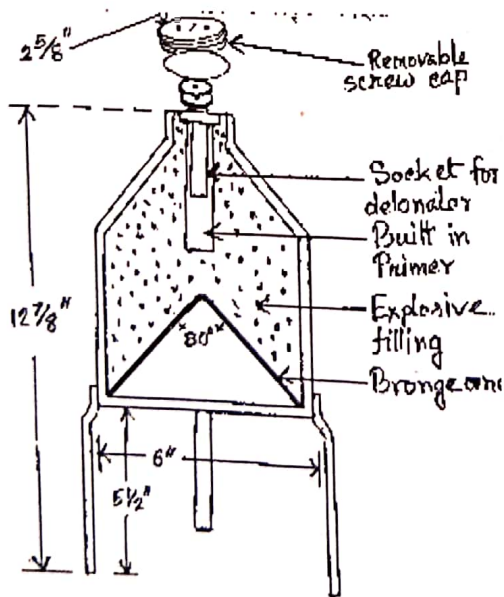 2 5/8"
Removable
screw cap
Socket for
delonator
Built in
Primer
12 7/8"
80°
Explosive
filling
Bronge cone
6"
5 1/2"